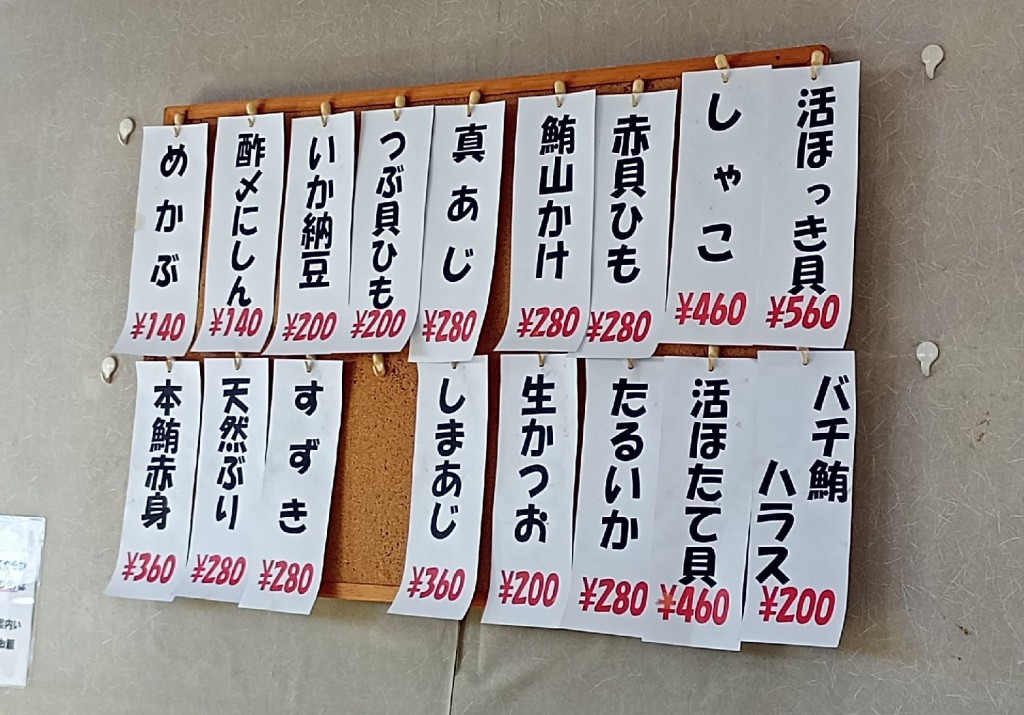 活ほっき貝
¥560
しゃこ
¥460
赤貝ひも
¥280
鮪山かけ
¥280
真あじ
¥280
つぶ貝ひも
¥200
いか納豆
¥200
酢〆にしん
¥140
めかぶ
¥140
バチ鮪
ハラス
¥200
活ほたて貝
¥460
たるいか
¥280
生かつお
¥200
しまあじ
¥360
すずき
¥280
天然ぶり
¥280
本鮪赤身
¥360